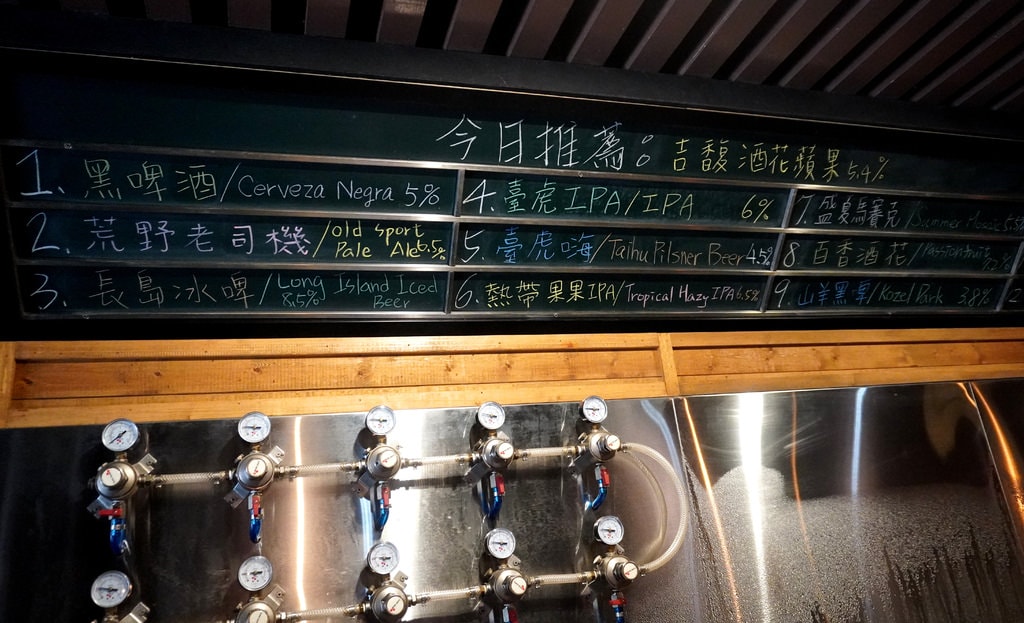 今日推薦: 吉馥酒花蘋果 5.4%
1. 黑啤酒/Cerveza Negra 5%
2. 荒野老司機/old sport Pale Ale 6.5%
3. 長島冰啤/Long Island Iced Beer 8.5%
4. 臺虎IPA/IPA 6%
5. 臺虎嗨/Taihu Pilsner Beer 4.5%
6. 熱帶果果IPA/Tropical Hazy IPA 6.5%
7. 盛夏馬賽克/Summer
8. 百香酒花/Passionfruit
9. 山羊黑啤/Kozel Park 3.8%